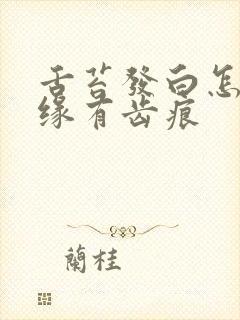 舌苔發白怎
缘有齿痕
蘭桂